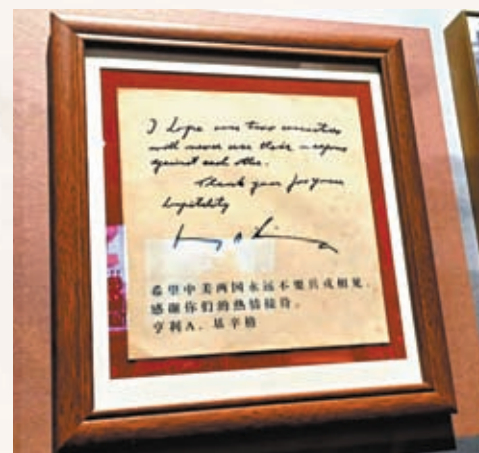 I hope our two countries
will never use their weapons
against each other.
Thank you for your
hospitality
希望中美两国永远不要兵戎相见。
感谢你们的热情接待。
亨利A．基辛格